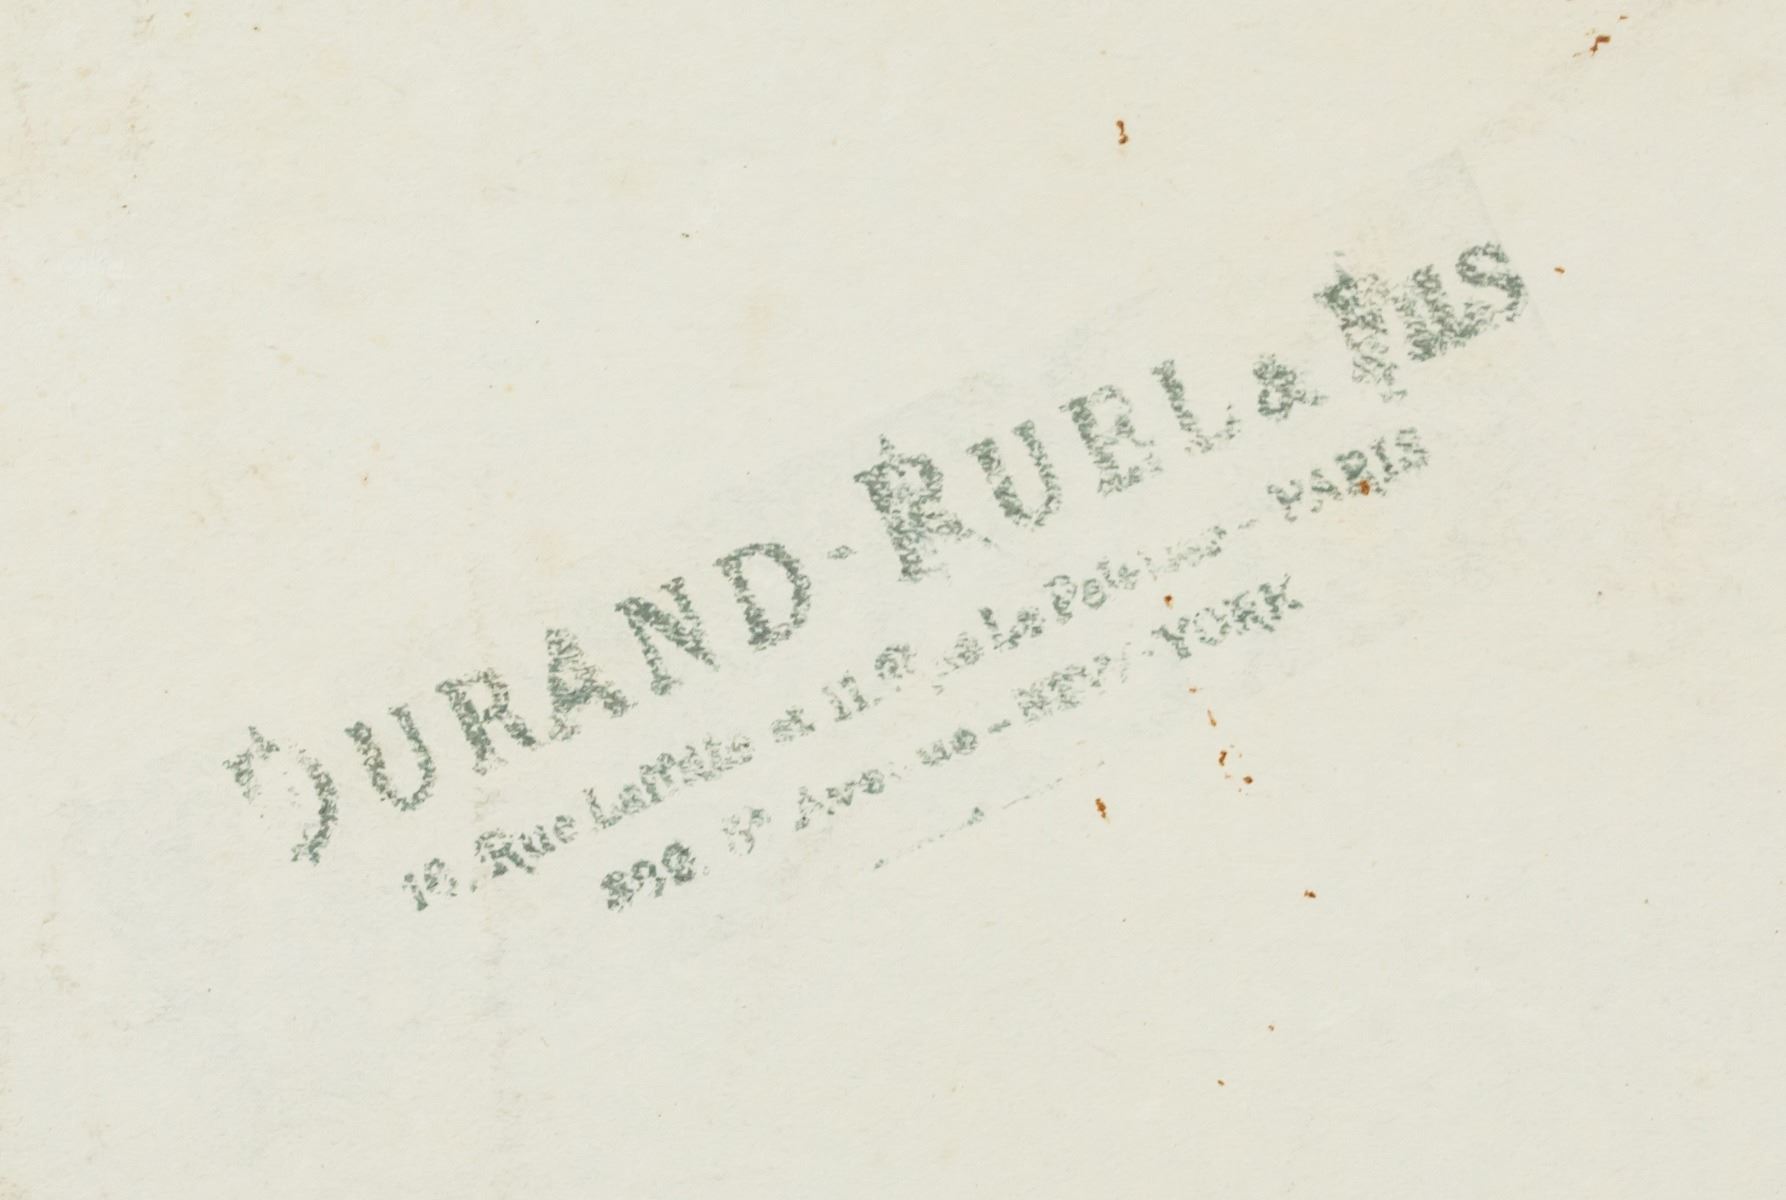 DURAND-RUEL & FILS
16, Rue Laffitte et 11, Rue Le Peletier - PARIS
5th Avenue - NEW-YORK